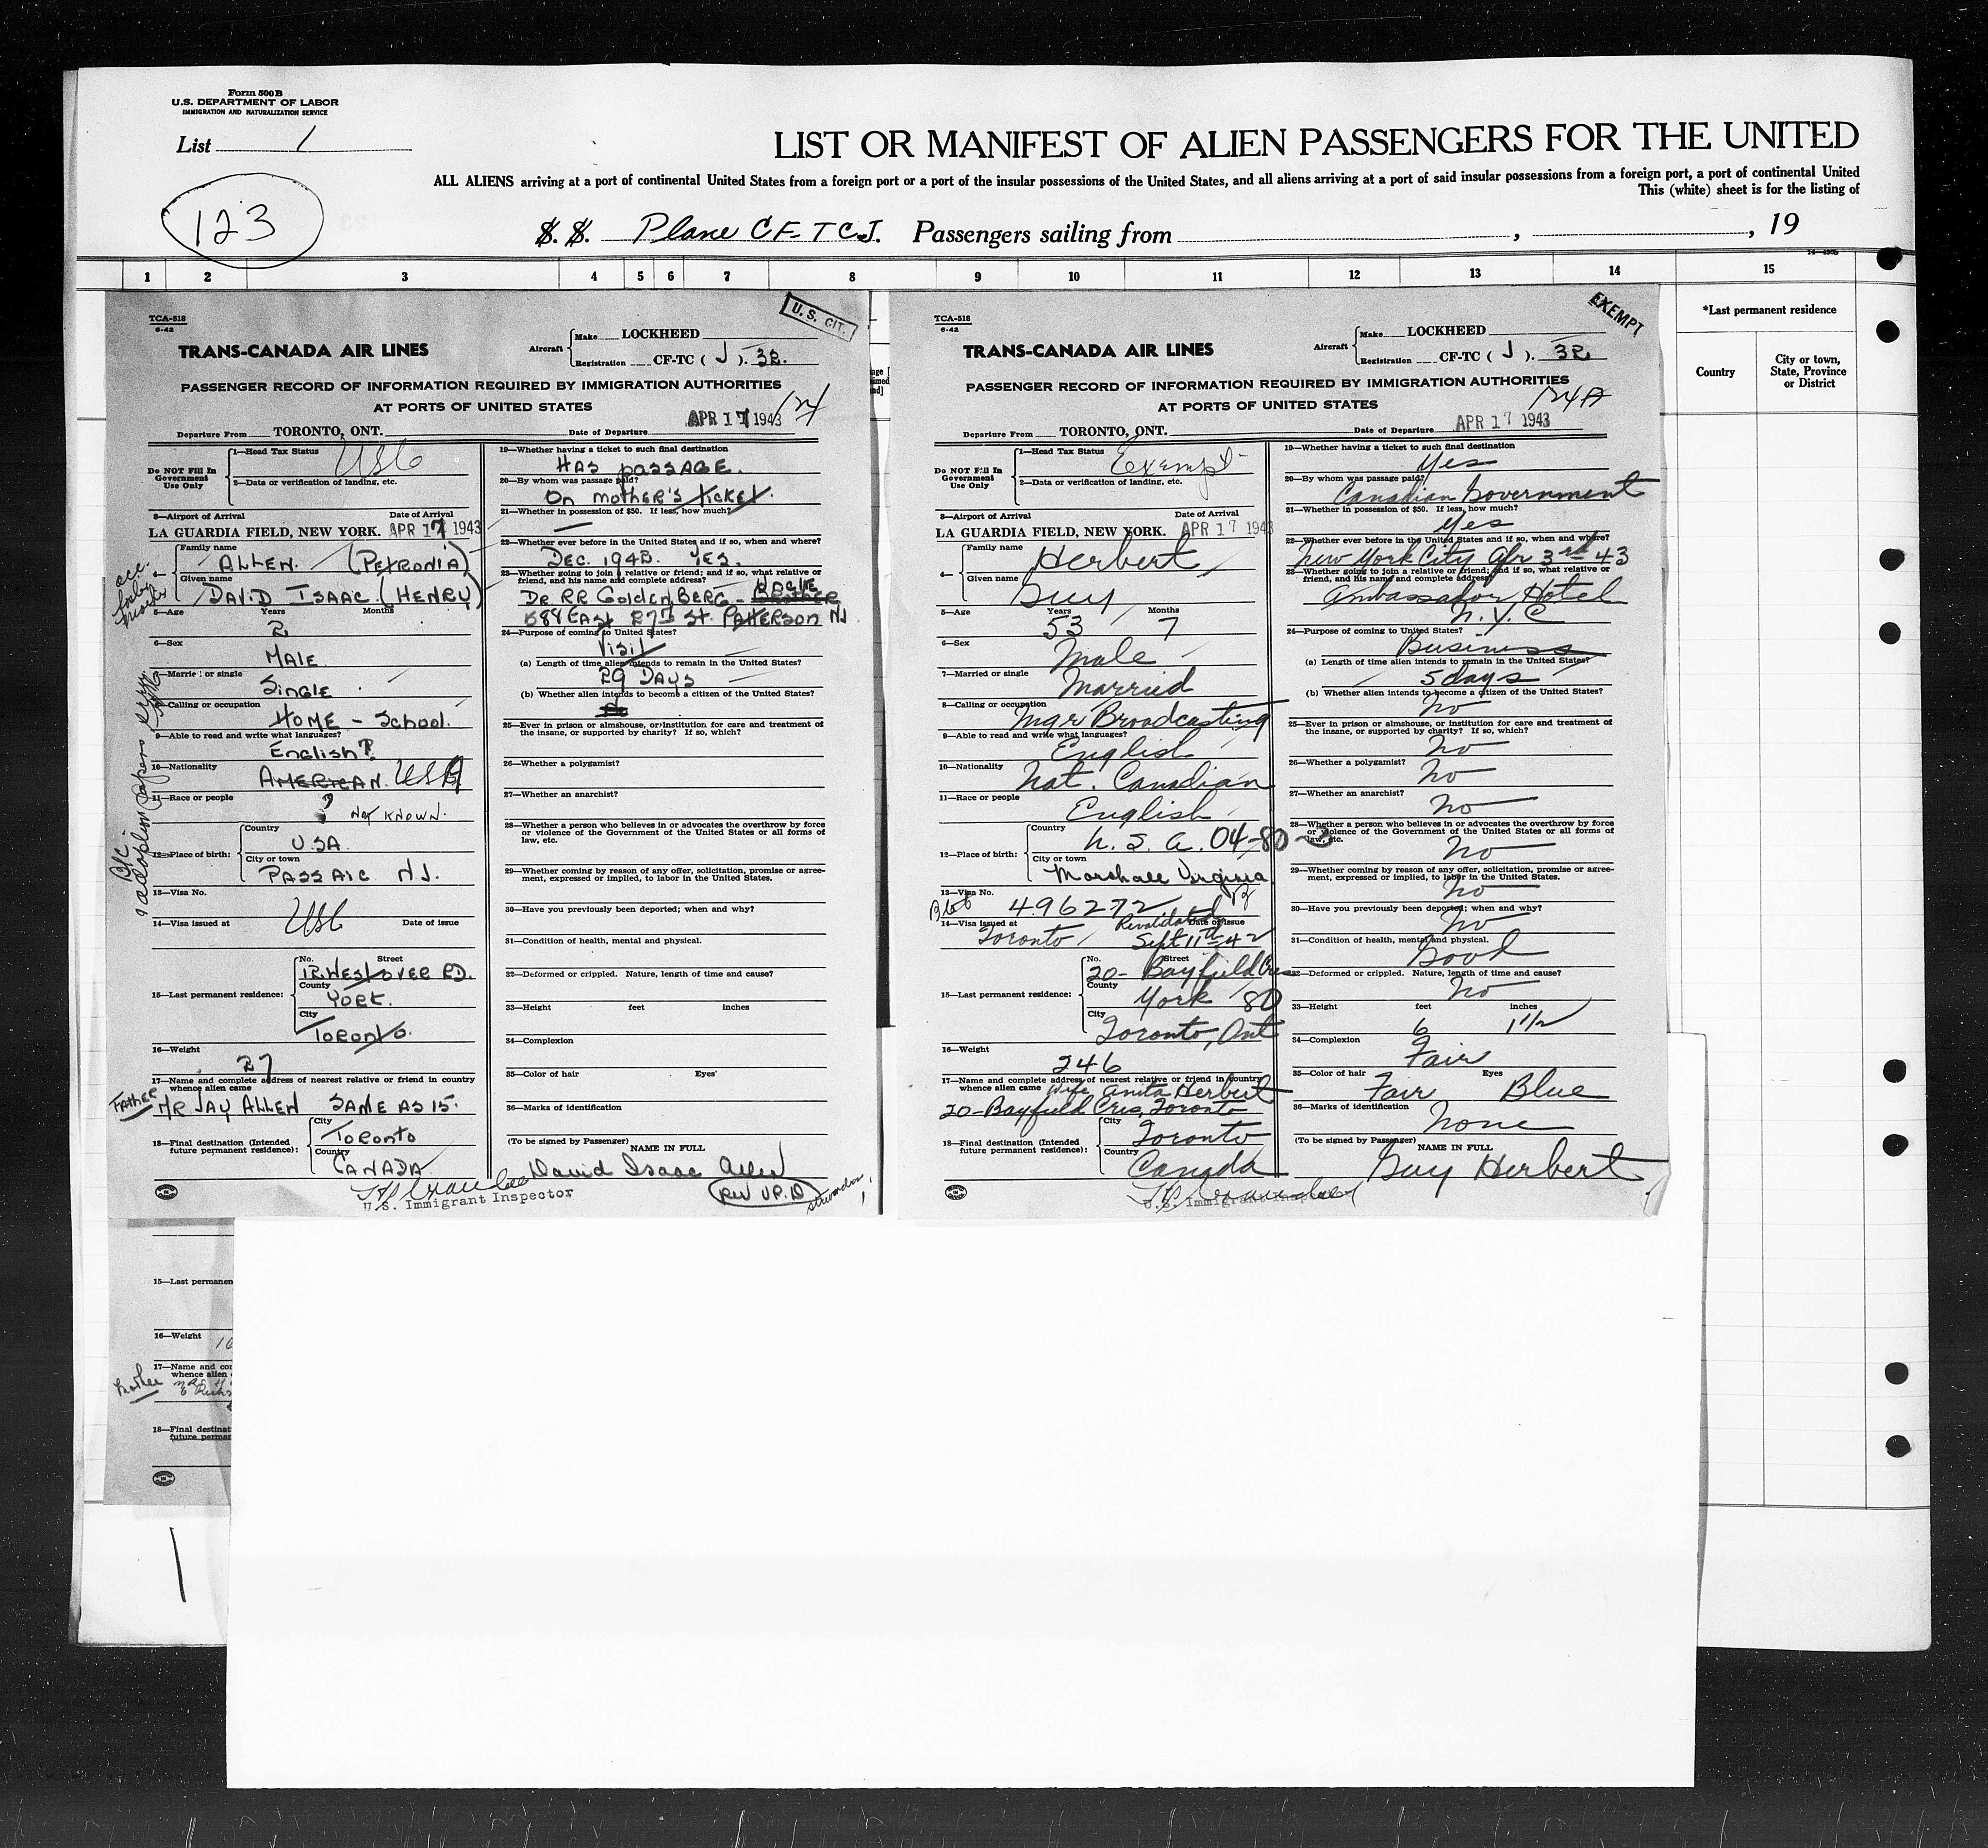 Form 500B
U.S. DEPARTMENT OF LABOR
IMMIGRATION AND NATURALIZATION SERVICE
List 1
LIST OR MANIFEST OF ALIEN PASSENGERS FOR THE UNITED
ALL ALIENS arriving at a port of continental United States from a foreign port or a port of the insular possessions of the United States, and all aliens arriving at a port of said insular possessions from a foreign port, a port of continental United
This (white) sheet is for the listing of
123
S. S. Plane CF-TCJ. Passengers sailing from , , 19
1 2 3 4 5 6 7 8 9 10 11 12 13 14 15
*Last permanent residence
Country
City or town, State, Province or District
TCA-518
6-42
U. S. CIT.
TRANS-CANADA AIR LINES
Aircraft Make LOCKHEED
Registration CF-TC ( J ). 32.
PASSENGER RECORD OF INFORMATION REQUIRED BY IMMIGRATION AUTHORITIES
AT PORTS OF UNITED STATES
124
Departure From TORONTO, ONT. Date of Departure APR 17 1943
Do NOT Fill In Government Use Only
1—Head Tax Status USC
2—Data or verification of landing, etc.
3—Airport of Arrival Date of Arrival
LA GUARDIA FIELD, NEW YORK. APR 17 1943
4— Family name ALLEN. (PETRONIA)
Given name DAVID ISAAC (HENRY)
5—Age Years Months
2
6—Sex MALE
7—Married or single SINGLE
8—Calling or occupation HOME - SCHOOL.
9—Able to read and write what languages? ENGLISH?
10—Nationality AMERICAN. USA
11—Race or people ? NOT KNOWN.
12—Place of birth: Country U.S.A.
City or town PASSAIC N.J.
13—Visa No.
14—Visa issued at USC Date of issue
15—Last permanent residence: No. Street 12 WESTOVER RD.
County YORK.
City TORONTO.
16—Weight 27
17—Name and complete address of nearest relative or friend in country whence alien came
FATHER MR JAY ALLEN SAME AS 15.
18—Final destination (Intended future permanent residence): City TORONTO
Country CANADA.
U.S. Immigrant Inspector
19—Whether having a ticket to such final destination
HAS PASSAGE.
20—By whom was passage paid?
ON MOTHER'S TICKET.
21—Whether in possession of $50. If less, how much?
—
22—Whether ever before in the United States and if so, when and where?
DEC. 1942. YES.
23—Whether going to join a relative or friend; and if so, what relative or friend, and his name and complete address?
UNCLE
DR RR GOLDENBERG - BROTHER
688 EAST 27TH ST. PATTERSON NJ
24—Purpose of coming to United States?
VISIT
(a) Length of time alien intends to remain in the United States?
29 DAYS
(b) Whether alien intends to become a citizen of the United States?
25—Ever in prison or almshouse, or institution for care and treatment of the insane, or supported by charity? If so, which?
26—Whether a polygamist?
27—Whether an anarchist?
28—Whether a person who believes in or advocates the overthrow by force or violence of the Government of the United States or all forms of law, etc.
29—Whether coming by reason of any offer, solicitation, promise or agreement, expressed or implied, to labor in the United States.
30—Have you previously been deported; when and why?
31—Condition of health, mental and physical.
32—Deformed or crippled. Nature, length of time and cause?
33—Height feet inches
34—Complexion
35—Color of hair Eyes
36—Marks of identification
(To be signed by Passenger) NAME IN FULL
David Isaac Allen
TCA-518
6-42
EXEMPT
TRANS-CANADA AIR LINES
Aircraft Make LOCKHEED
Registration CF-TC ( J ). 32.
PASSENGER RECORD OF INFORMATION REQUIRED BY IMMIGRATION AUTHORITIES
AT PORTS OF UNITED STATES
124A
Departure From TORONTO, ONT. Date of Departure APR 17 1943
Do NOT Fill In Government Use Only
1—Head Tax Status Exempt
2—Data or verification of landing, etc.
3—Airport of Arrival Date of Arrival
LA GUARDIA FIELD, NEW YORK. APR 17 1943
4— Family name Herbert
Given name Guy
5—Age Years Months
53 7
6—Sex Male
7—Married or single Married
8—Calling or occupation Mgr Broadcasting
9—Able to read and write what languages? English
10—Nationality Nat. Canadian
11—Race or people English
12—Place of birth: Country U. S. A. 04-80-
City or town Marshall Virginia
13—Visa No. 496272
14—Visa issued at Toronto Revalidated Date of issue Sept 11th-42
15—Last permanent residence: No. Street 20- Bayfield Cres
County York 80
City Toronto, Ont
16—Weight 246
17—Name and complete address of nearest relative or friend in country whence alien came
Wife Anita Herbert
20-Bayfield Cres, Toronto
18—Final destination (Intended future permanent residence): City Toronto
Country Canada
U.S. Immigrant Inspector
19—Whether having a ticket to such final destination
Yes
20—By whom was passage paid?
Canadian Government
21—Whether in possession of $50. If less, how much?
Yes
22—Whether ever before in the United States and if so, when and where?
New York City Apr 3rd 43
23—Whether going to join a relative or friend; and if so, what relative or friend, and his name and complete address?
Ambassador Hotel
N. Y. C
24—Purpose of coming to United States?
Business
(a) Length of time alien intends to remain in the United States?
5 days
(b) Whether alien intends to become a citizen of the United States?
No
25—Ever in prison or almshouse, or institution for care and treatment of the insane, or supported by charity? If so, which?
No
26—Whether a polygamist?
No
27—Whether an anarchist?
No
28—Whether a person who believes in or advocates the overthrow by force or violence of the Government of the United States or all forms of law, etc.
No
29—Whether coming by reason of any offer, solicitation, promise or agreement, expressed or implied, to labor in the United States.
No
30—Have you previously been deported; when and why?
No
31—Condition of health, mental and physical.
Good
32—Deformed or crippled. Nature, length of time and cause?
No
33—Height feet inches
6 1 1/2
34—Complexion
Fair
35—Color of hair Eyes
Fair Blue
36—Marks of identification
None
(To be signed by Passenger) NAME IN FULL
Guy Herbert
15—Last permanen
16—Weight
17—Name and co
whence alien
Mother
18—Final destinat
future permar